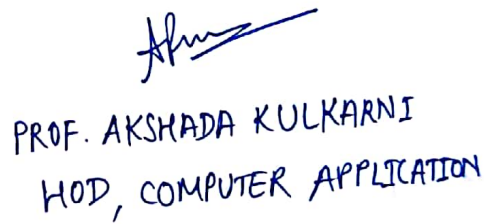 PROF. AKSHADA KULKARNI
HOD, COMPUTER APPLICATION